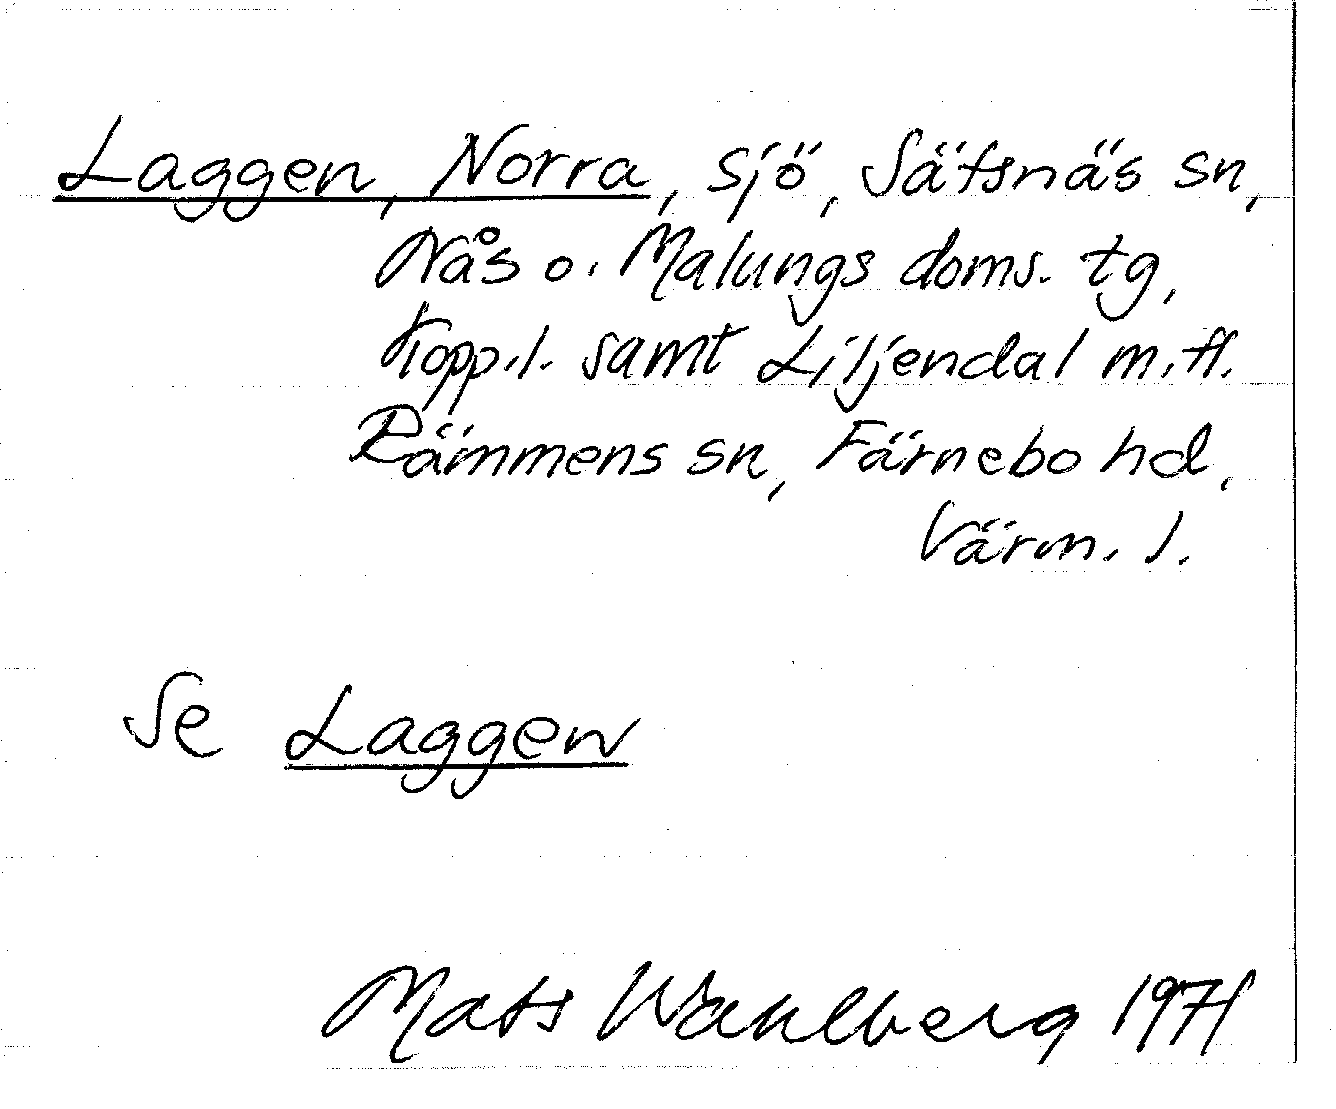 Laggen, Norra, sjö, Sätsnäs sn,
Nås o. Malungs doms. tg,
Kopp.l. samt Liljendal m.fl.
Rämmens sn, Färnebo hd,
Värm. l.
Se Laggen
Mats Wahlberg 1971